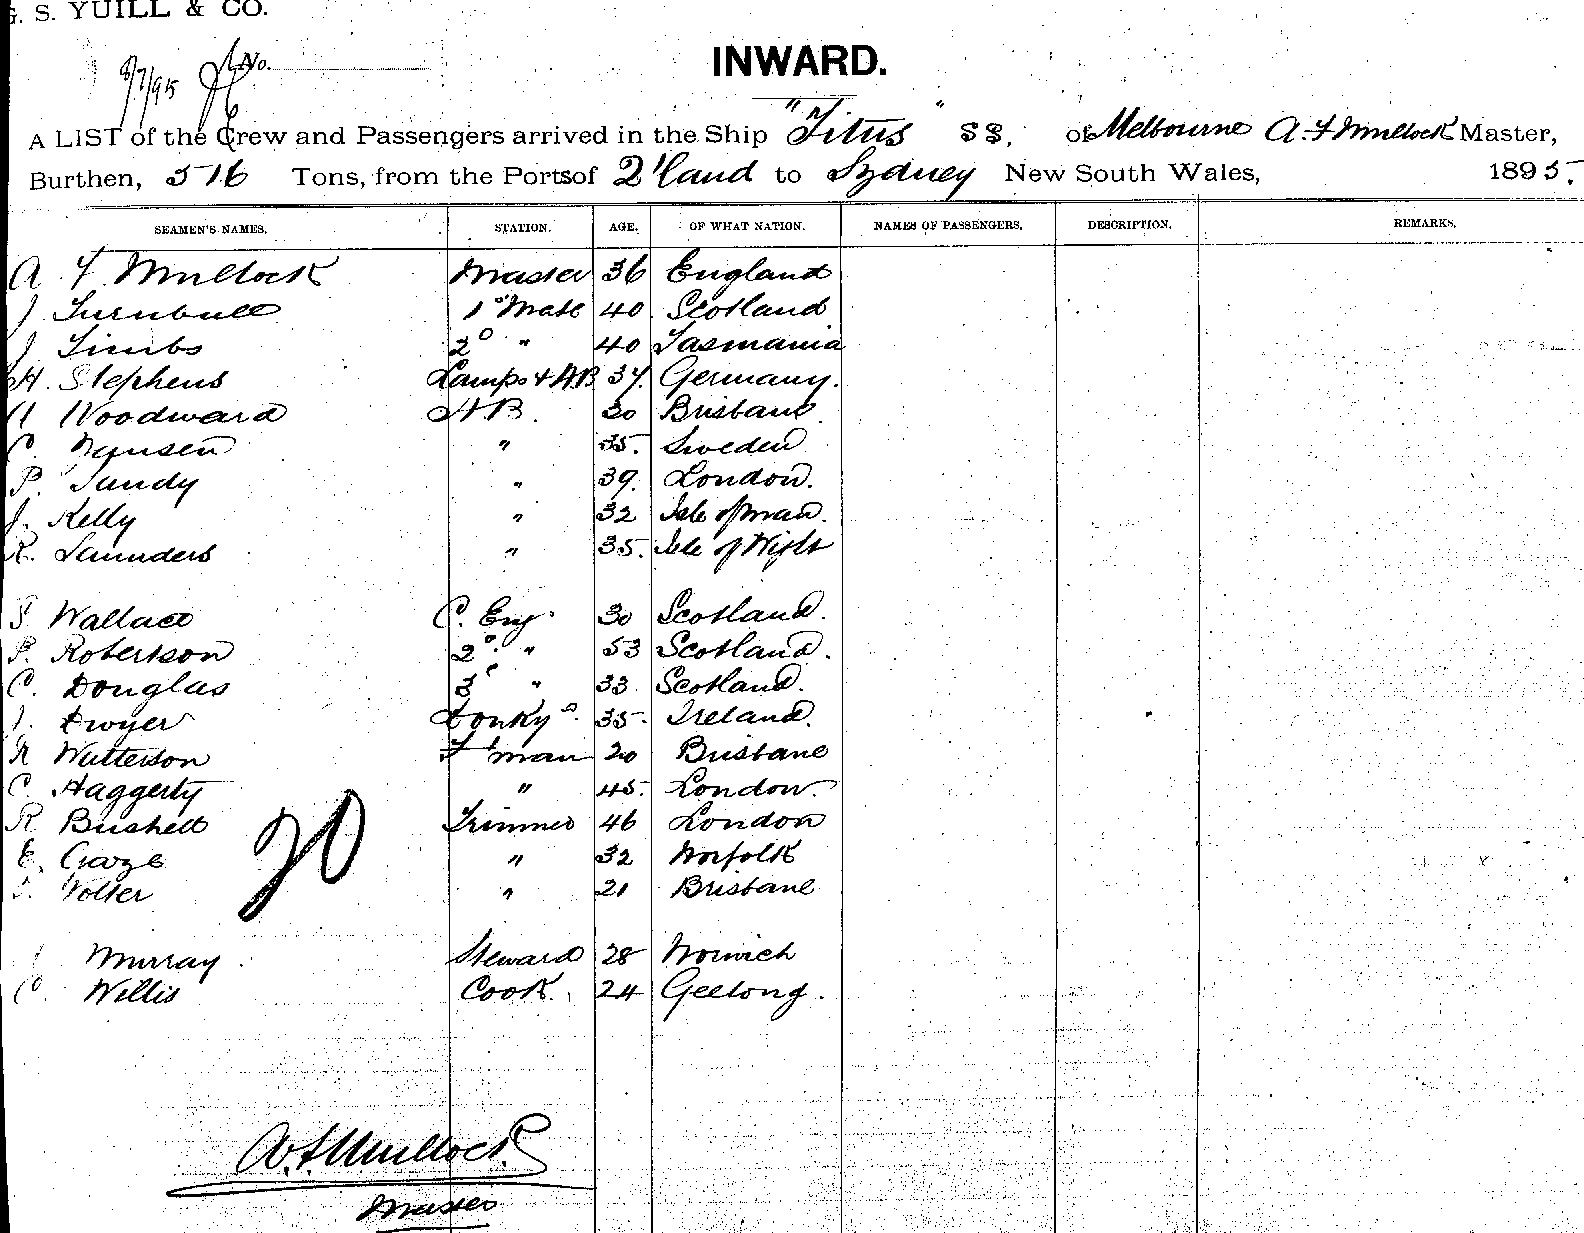 G. S. YUILL & CO.
8/7/95 No.
INWARD.
A LIST of the Crew and Passengers arrived in the Ship "Titus" SS. of Melbourne A. F Mullock Master,
Burthen, 516 Tons, from the Ports of Q'land to Sydney New South Wales, 1895.
SEAMEN'S NAMES. STATION. AGE. OF WHAT NATION. NAMES OF PASSENGERS. DESCRIPTION. REMARKS.
A. F Mullock Master 36 England
J Turnbull 1° Mate 40 Scotland
J Timbs 2° " 40 Tasmania
H. Stephens Lamps & AB 37. Germany.
Woodward AB 30 Brisbane
C. Hansen " 35. Sweden
P. Tandy " 39. London.
J. Kelly " 32 Isle of man.
R. Saunders " 35. Isle of Wight
Wallace C. Eng. 30 Scotland.
P. Robertson 2° " 53 Scotland.
C. Douglas 3 " 33 Scotland.
J. Dwyer Donky 35. Ireland.
R Watterson F man 20 Brisbane
C. Haggerty " 45. London.
R Bushell Trimmer 46 London
E. Gaze " 32 Norfolk
Volter " 21 Brisbane
20
Murray Steward 28 Norwich
C. Willis Cook. 24 Geelong.
A. F Mullock
Master